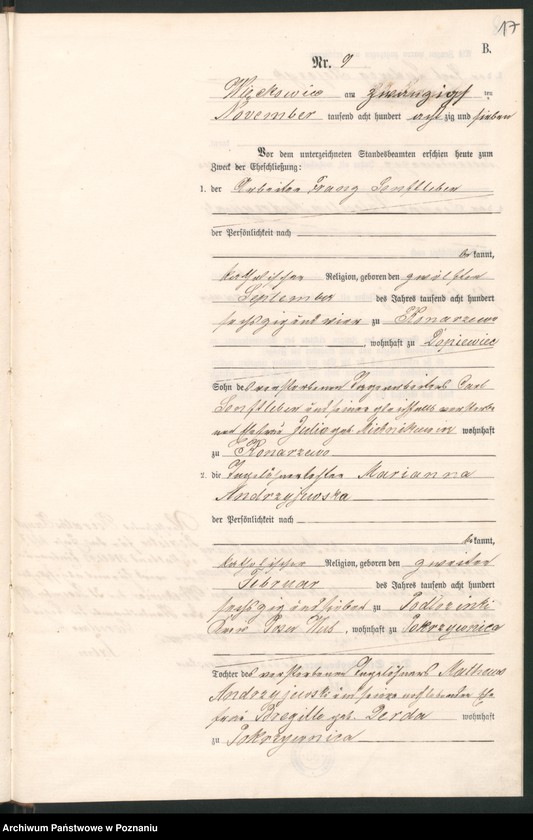 17
B.
Nr. 9
Więckowice am zwanzigsten
November tausend acht hundert achtzig und sieben
Vor dem unterzeichneten Standesbeamten erschien heute zum
Zweck der Eheschließung:
1. der Arbeiter Franz Senftleben
der Persönlichkeit nach
bekannt,
katholischer Religion, geboren den zwölften
September des Jahres tausend acht hundert
sechszig und vier zu Konarzewo
, wohnhaft zu Dopiewiec
Sohn des verstorbenen Tagearbeiters Carl
Senftleben und seiner gleichfalls verstorbe
nen Ehefrau Julia geb. wohnhaft
zu Konarzewo
2. die Tagelöhnertochter Marianna
Andrzejewska
der Persönlichkeit nach
bekannt,
katholischer Religion, geboren den zweiten
Februar des Jahres tausend acht hundert
sechszig und sieben zu
Kreis Posen West, wohnhaft zu Pokrzywnica
Tochter des verstorbenen Tagelöhners Matheus
Andrzejewski und seiner Ehe
frau geb. Derda wohnhaft
zu Pokrzywnica
Archiwum Państwowe w Poznaniu